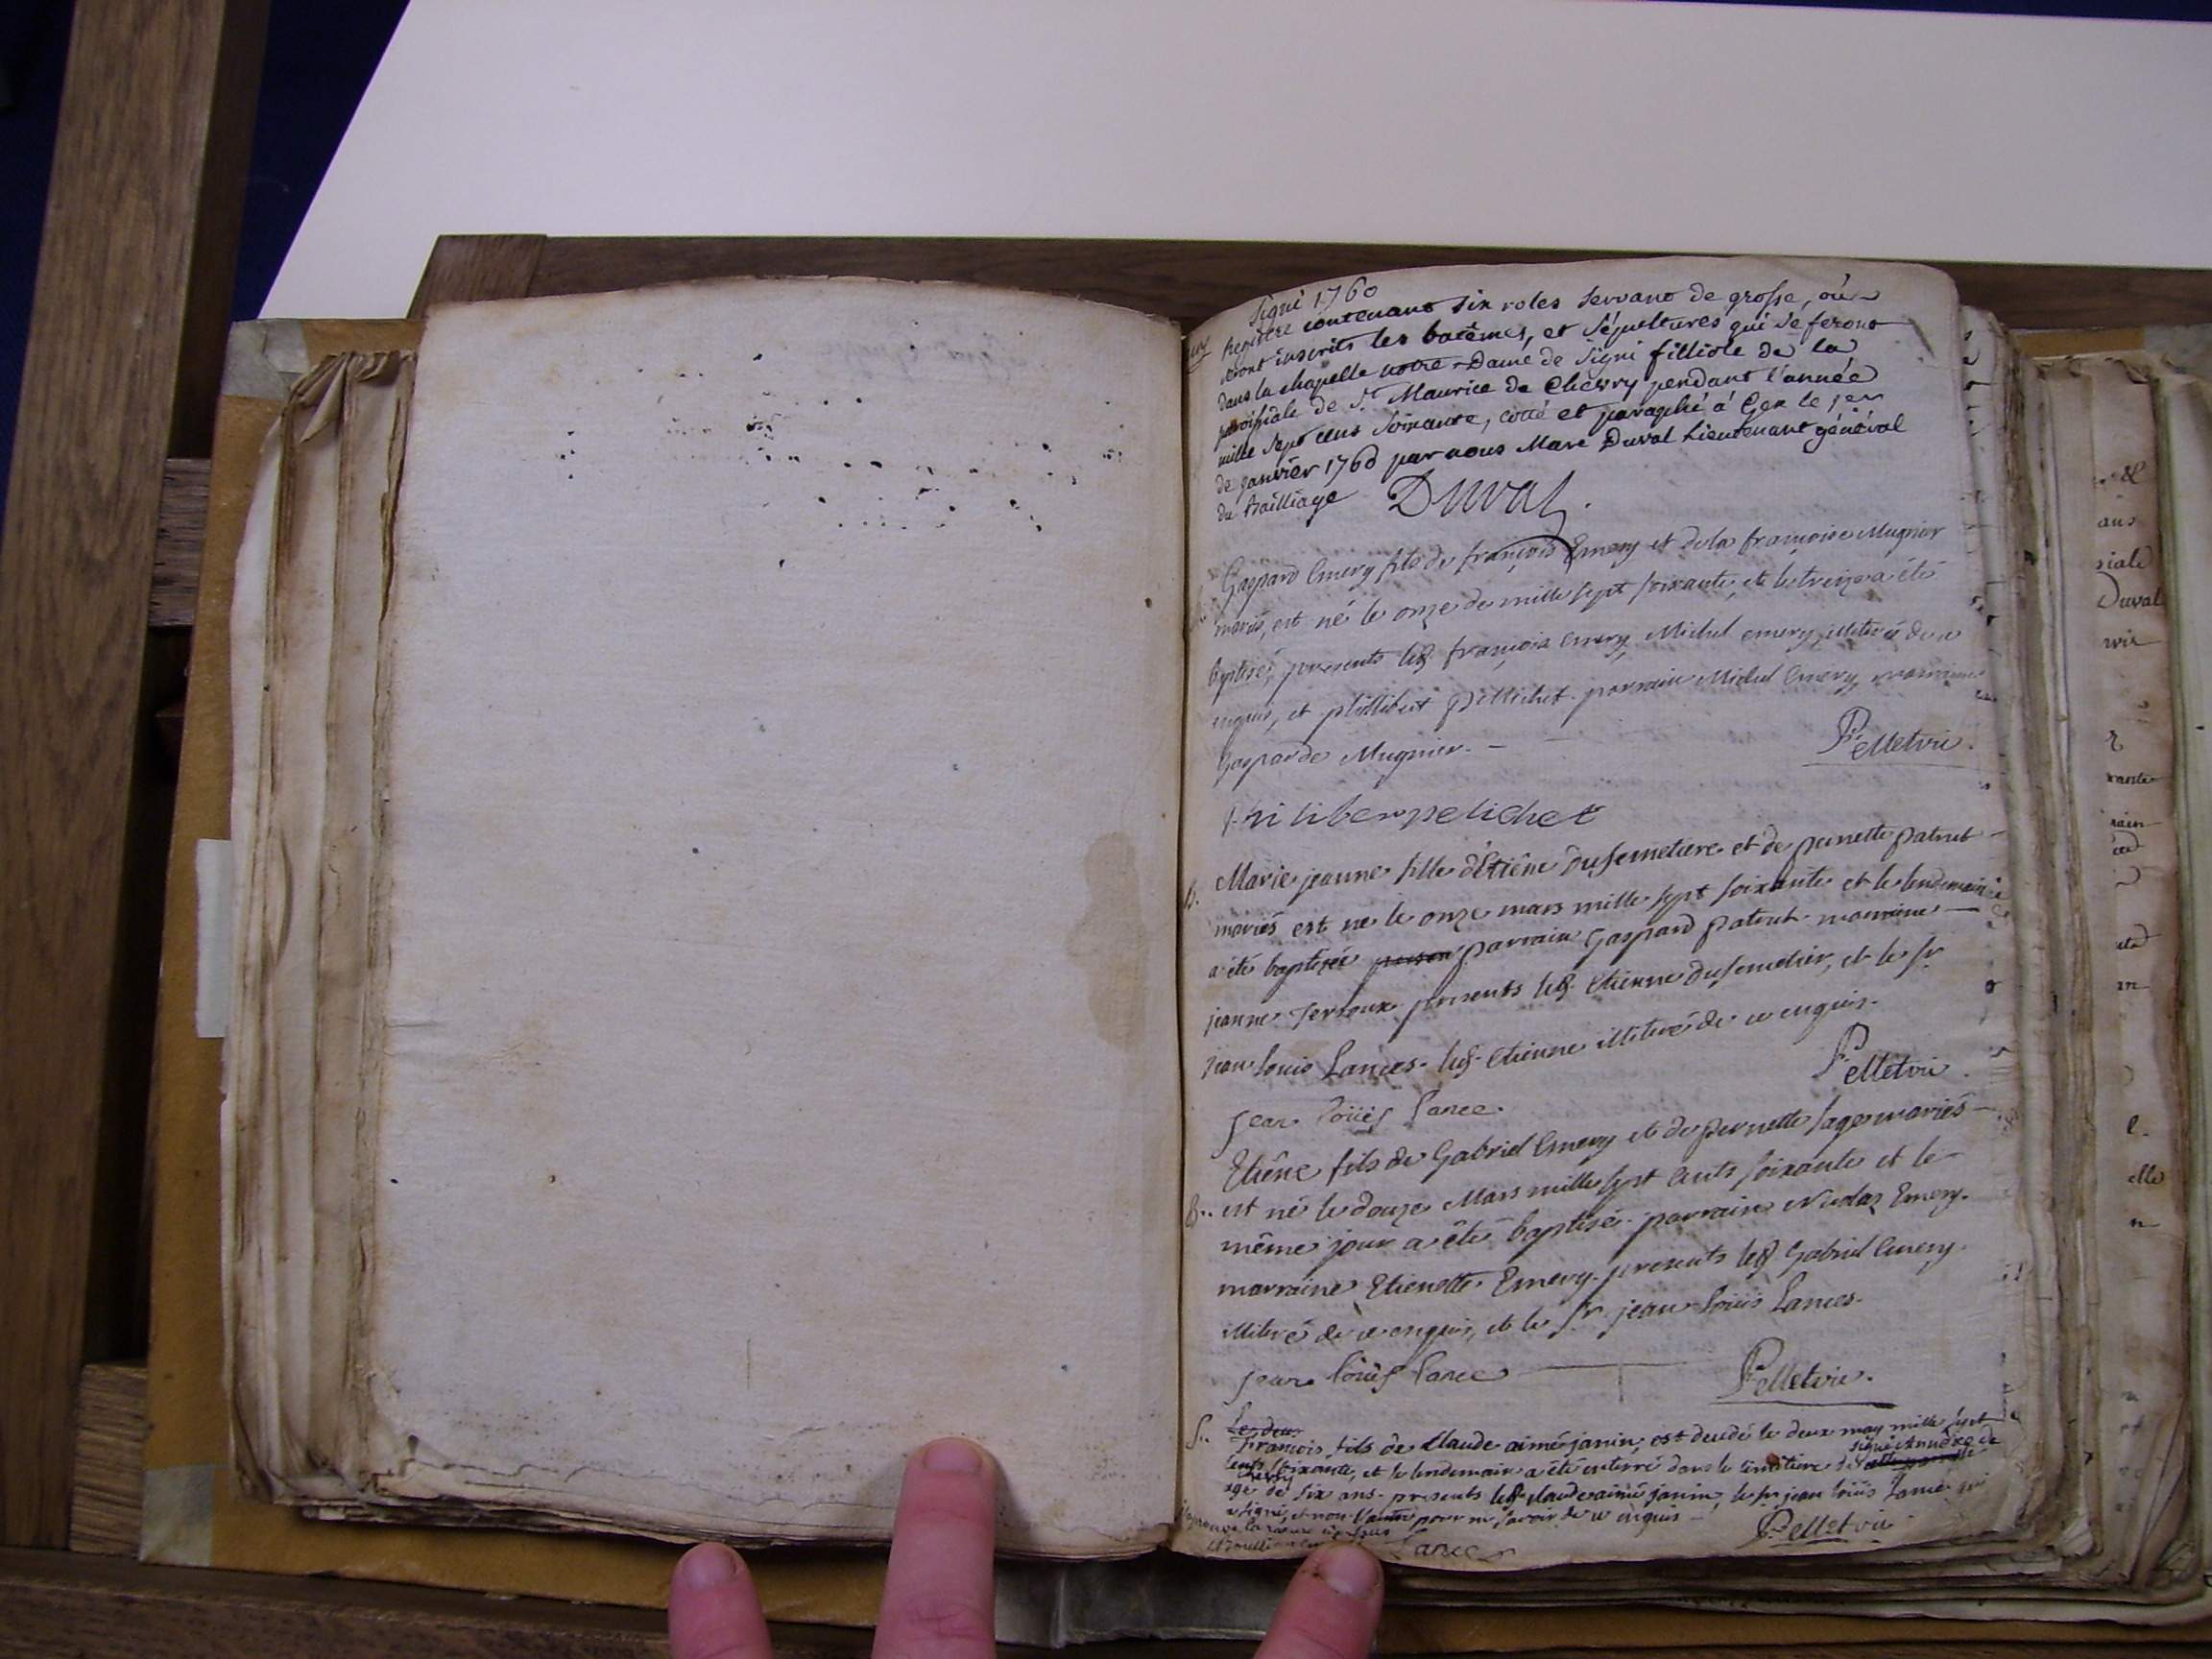 Signi 1760
Registre contenant six roles servant de grosse, où
seront inscrits les batêmes, et sépultures qui se feront
dans la chapelle notre Dame de Signi filliole de la
paroissiale de St Maurice de Chevry pendant l'année
mille sept cens soixante, cotté et paraphé à Gex le 1er
de janvier 1760 par nous Marc Duval Lieutenant général
du Bailliage Duval
Gaspard Emery fils de françois Emery et de la françoise Mugnier
mariés, est né le onze de mille sept soixante, et le treize a été
baptisé, presents led. françois Emery, Michel emery illiteré de ce
enquis, et phillibert Pellichet. parrain Michel Emery, marraine
Gasparde Mugnier. Pelletrie.
philiber pelichet
B. Marie jeanne fille d'Etiêne Dusemetiere et de pernette patrut
mariés est né le onze mars mille sept soixante et le lendemain
a été baptisée parrain Gaspard patrut marraine
jeanne Terroux presents led. Etienne dusemetier, et le sr
jean louis Lances. led. Etienne illiteré de ce enquis.
Pelletrie.
jean loüis lance.
Etiêne fils de Gabriel Emery et de pernette sage mariés
B.. est né le douze Mars mille sept cents soixante et le
même jour a été baptisé. parrain Nicolas Emery.
marraine Etienette Emery. presents led. Gabriel Emery.
illiteré de ce enquis, et le sr. jean loüis Lances.
jean loüis lance Pelletrie.
S.. Le deux
françois fils de Claude aimé janin, est decedé le deux may mille sept
cents soixante, et le lendemain a été enterré dans le cimetiere de
chevry
agé de six ans. presents led. claude aimé janin, le sr jean loüis Lance qui
a signé, et non l'autre pour ne savoir de ce enquis Pelletrie
Lance
Duval